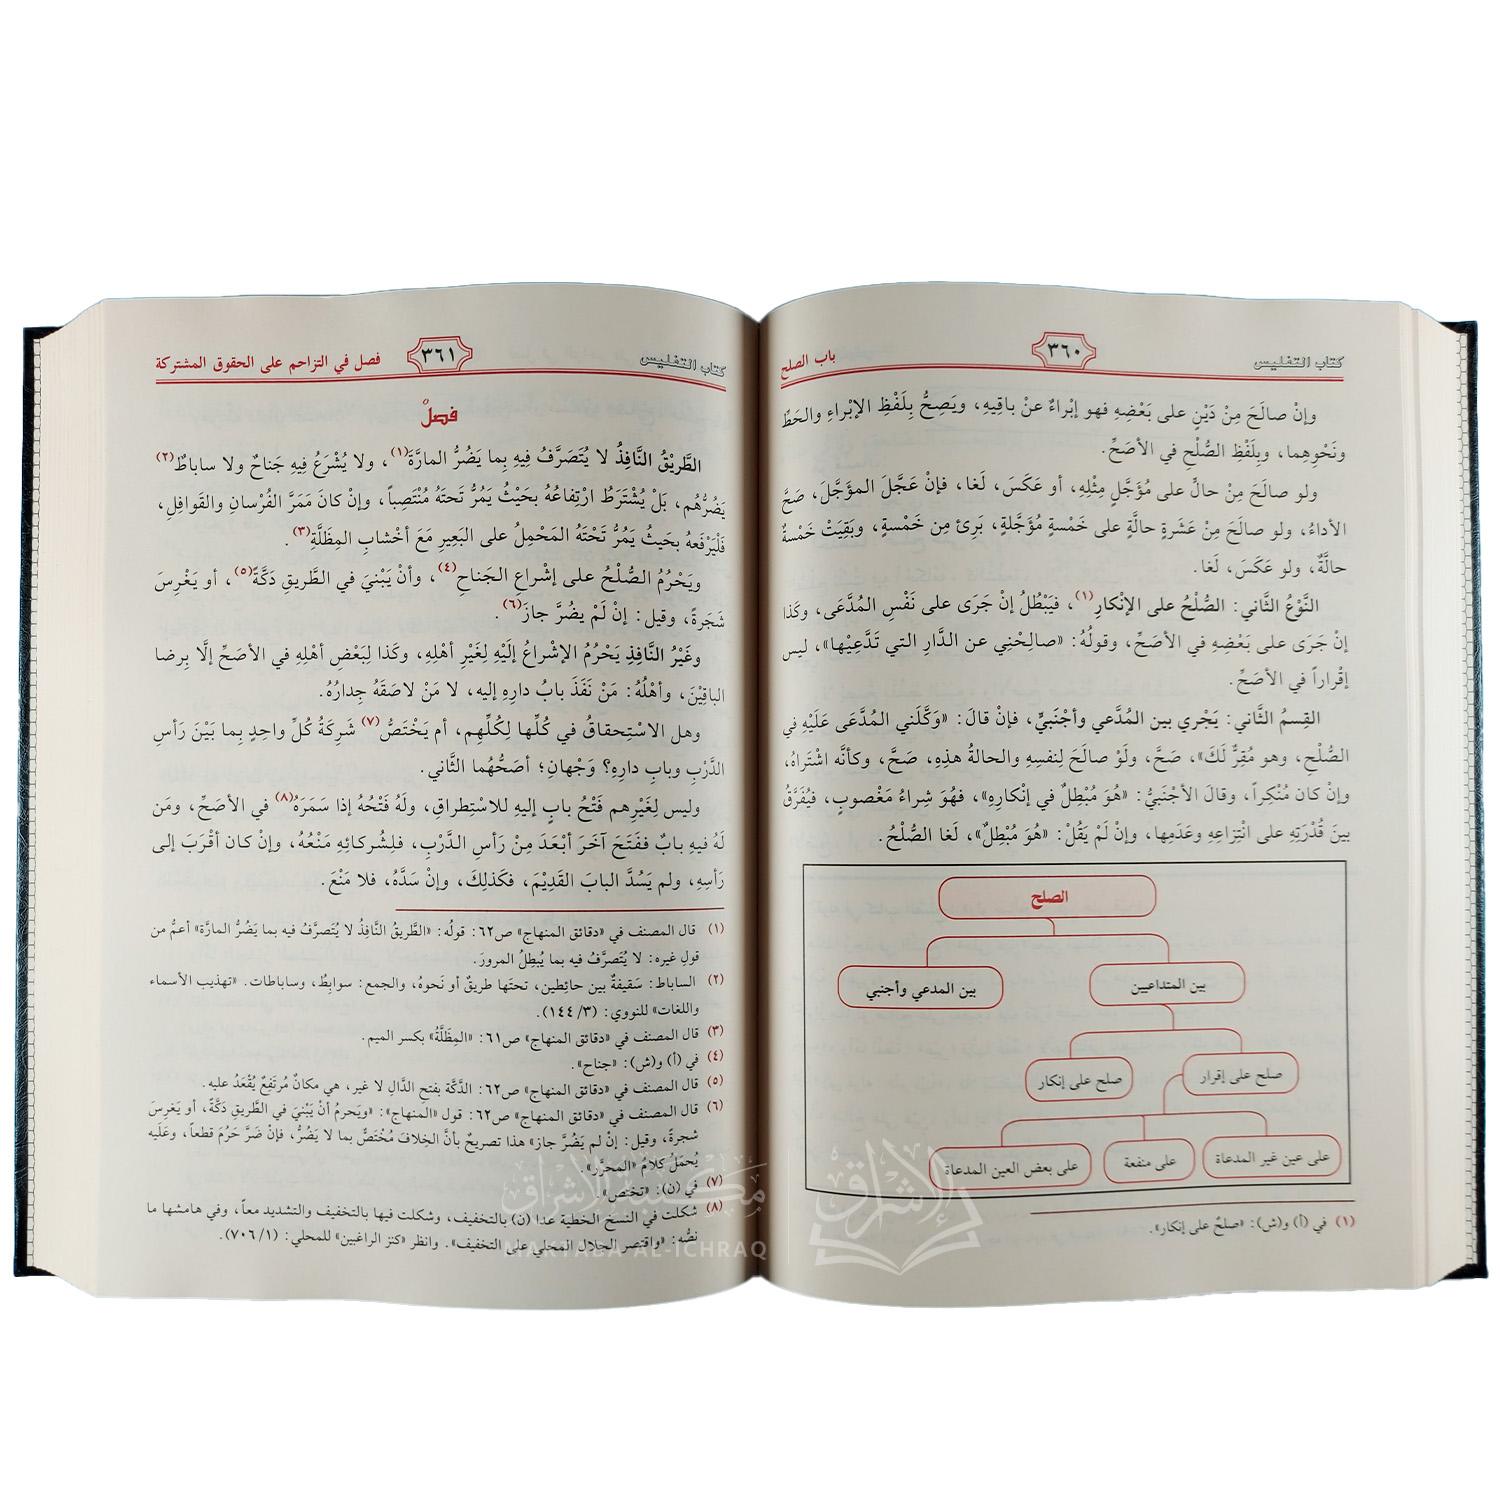 كتاب التفليس ٣٦٠ باب الصلح
وإنْ صالَحَ مِنْ دَيْنٍ على بَعْضِهِ فهو إبْراءٌ عنْ باقِيهِ، ويَصِحُّ بِلَفْظِ الإبْراءِ والحَطِّ
ونَحْوِهِما، وبِلَفْظِ الصُّلْحِ في الأصَحِّ.
ولو صالَحَ مِنْ حالٍّ على مُؤَجَّلٍ مِثْلِهِ، أو عَكَسَ، لَغا، فإنْ عَجَّلَ المؤَجَّلَ، صَحَّ
الأداءُ، ولو صالَحَ مِنْ عَشَرةٍ حالَّةٍ على خَمْسةٍ مُؤَجَّلةٍ، بَرِئَ مِن خَمْسةٍ، وبَقِيَتْ خَمْسةٌ
حالَّةٌ، ولو عَكَسَ، لَغا.
النَّوْعُ الثَّاني: الصُّلْحُ على الإنْكارِ(١)، فيَبْطُلُ إنْ جَرَى على نَفْسِ المُدَّعَى، وكَذا
إنْ جَرَى على بَعْضِهِ في الأصَحِّ، وقولُهُ: «صالِحْنِي عن الدَّارِ التي تَدَّعِيْها»، ليس
إقْراراً في الأصَحِّ.
القِسمُ الثَّاني: يَجْري بين المُدَّعي وأجْنَبيٍّ، فإنْ قالَ: «وَكَّلَني المُدَّعَى عَلَيْهِ في
الصُّلْحِ، وهو مُقِرٌّ لَكَ»، صَحَّ، ولَوْ صالَحَ لِنفسِهِ والحالةُ هذِهِ، صَحَّ، وكأنَّه اشْتَراهُ،
وإنْ كان مُنْكِراً، وقالَ الأجْنَبيُّ: «هُوَ مُبْطِلٌ في إنْكارِهِ»، فهُوَ شِراءُ مَغْصوبٍ، فيُفَرَّقُ
بينَ قُدْرَتِهِ على انْتِزاعِهِ وعَدَمِها، وإنْ لَمْ يَقُلْ: «هُوَ مُبْطِلٌ»، لَغا الصُّلْحُ.
الصلح
بين المتداعيين بين المدعي وأجنبي
صلح على إقرار صلح على إنكار
على عين غير المدعاة على منفعة على بعض العين المدعاة
(١) في (أ) و(ش): «صلحٌ على إنكار».
كتاب التفليس ٣٦١ فصل في التزاحم على الحقوق المشتركة
فصلٌ
الطَّريْقُ النَّافِذُ لا يُتَصَرَّفُ فيهِ بِما يَضُرُّ المارَّةَ(١)، ولا يُشْرَعُ فيهِ جَناحٌ ولا ساباطٌ(٢)
يَضُرُّهُم، بَلْ يُشْتَرَطُ ارْتِفاعُهُ بحَيْثُ يَمُرُّ تَحتَهُ مُنْتَصِباً، وإنْ كانَ مَمَرَّ الفُرْسانِ والقَوافِلِ،
فَلْيَرْفَعهُ بحَيثُ يمُرُّ تَحْتَهُ المَحْمِلُ على البَعيرِ مَعَ أخْشابِ المِظَلَّةِ(٣).
ويَحْرُمُ الصُّلْحُ على إشْراعِ الجَناحِ(٤)، وأنْ يَبْنيَ في الطَّريقِ دَكَّةً(٥)، أو يَغْرِسَ
شَجَرةً، وقيل: إنْ لَمْ يضُرَّ جازَ(٦).
وغَيْرُ النَّافِذِ يَحْرُمُ الإشْراعُ إلَيْهِ لِغَيْرِ أهْلِهِ، وكَذا لِبَعْضِ أهْلِهِ في الأصَحِّ إلَّا بِرِضا
الباقِيْنَ، وأهْلُهُ: مَنْ نَفَذَ بابُ دارِهِ إليه، لا مَنْ لاصَقَهُ جِدارُهُ.
وهل الاسْتِحقاقُ في كُلِّها لِكُلِّهِم، أم يَخْتَصُّ(٧) شَرِكَةُ كُلِّ واحِدٍ بِما بَيْنَ رَأسِ
الدَّرْبِ وبابِ دارِهِ؟ وَجْهانِ؛ أصَحُّهُما الثَّاني.
وليس لِغَيْرِهِم فَتْحُ بابٍ إليه للاسْتِطراقِ، ولَهُ فَتْحُهُ إذا سَمَرَهُ(٨) في الأصَحِّ، ومَن
لَهُ فيهِ بابٌ ففَتَحَ آخَرَ أبْعَدَ مِنْ رَأسِ الدَّرْبِ، فلِشُركائِهِ مَنْعُهُ، وإنْ كان أقْرَبَ إلى
رَأسِهِ، ولم يَسُدَّ البابَ القَدِيْمَ، فكَذلِكَ، وإنْ سَدَّهُ، فلا مَنْعَ.
(١) قال المصنف في «دقائق المنهاج» ص٦٢: قولُه: «الطَّريقُ النَّافِذُ لا يُتَصَرَّفُ فيه بما يَضُرُّ المارَّة» أعمُّ من
قولِ غيره: لا يُتَصرَّفُ فيه بما يُبطِلُ المرورَ.
(٢) الساباط: سَقيفةٌ بين حائِطين، تحتَها طريقٌ أو نَحوهُ، والجمع: سوابِطُ، وساباطات. «تهذيب الأسماء
واللغات» للنووي: (٣/ ١٤٤).
(٣) قال المصنف في «دقائق المنهاج» ص٦١: «المِظَلَّةُ» بكسر الميم.
(٤) في (أ) و(ش): «جناح».
(٥) قال المصنف في «دقائق المنهاج» ص٦٢: الدَّكَّة بفتحِ الدَّالِ لا غير، هي مكانٌ مُرتَفِعٌ يُقْعَدُ عليه.
(٦) قال المصنف في «دقائق المنهاج» ص٦٢: قول «المنهاج»: «ويَحرمُ أنْ يَبْنيَ في الطَّريقِ دَكَّةً، أو يَغرِسَ
شجرةً، وقيل: إنْ لم يَضُرَّ جاز» هذا تصريحٌ بأنَّ الخِلافَ مُخْتَصٌّ بما لا يَضُرُّ، فإنْ ضَرَّ حَرُمَ قطعاً، وعَلَيه
يُحمَلُ كلامُ «المحرَّر».
(٧) في (ن): «تختص».
(٨) شكلت في النسخ الخطية عدا (ن) بالتخفيف، وشكلت فيها بالتخفيف والتشديد معاً، وفي هامشها ما
نصُّه: «واقتصر الجلال المحلي على التخفيف». وانظر «كنز الراغبين» للمحلي: (١/ ٧٠٦).
مكتبة الإشراق
MAKTABA AL-ICHRAQ
الإشراق